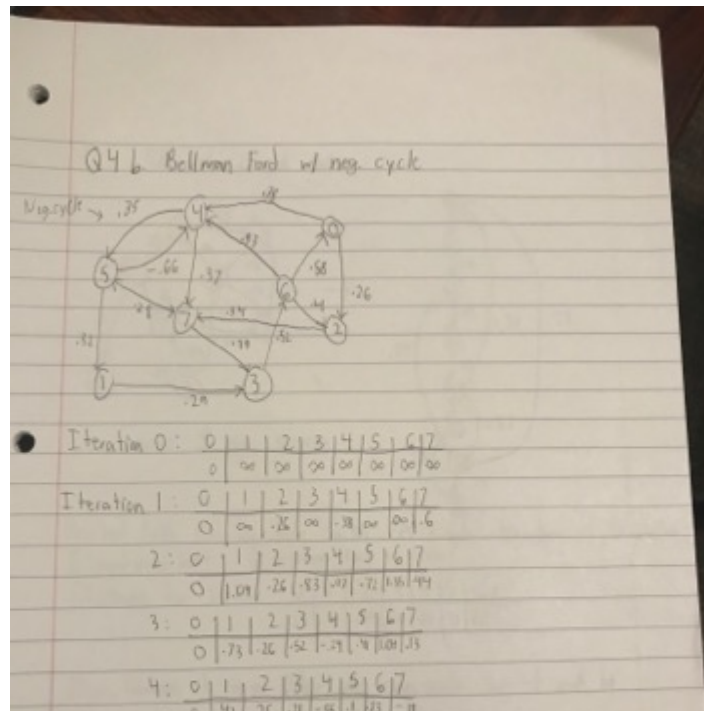 Q4 b Bellman Ford w/ neg. cycle
Neg. cycle → .35
4
0
-.66
.93
.58
5
.37
6
.26
.28
7
.34
2
.32
.39
.52
1
3
.29
Iteration 0: 0 1 2 3 4 5 6 7
0 ∞ ∞ ∞ ∞ ∞ ∞ ∞
Iteration 1: 0 1 2 3 4 5 6 7
0 ∞ .26 ∞ .38 ∞ ∞ .6
2: 0 1 2 3 4 5 6 7
0 1.04 .26 .83 .72 .44
3: 0 1 2 3 4 5 6 7
0 .73 .26 .52
4: 0 1 2 3 4 5 6 7